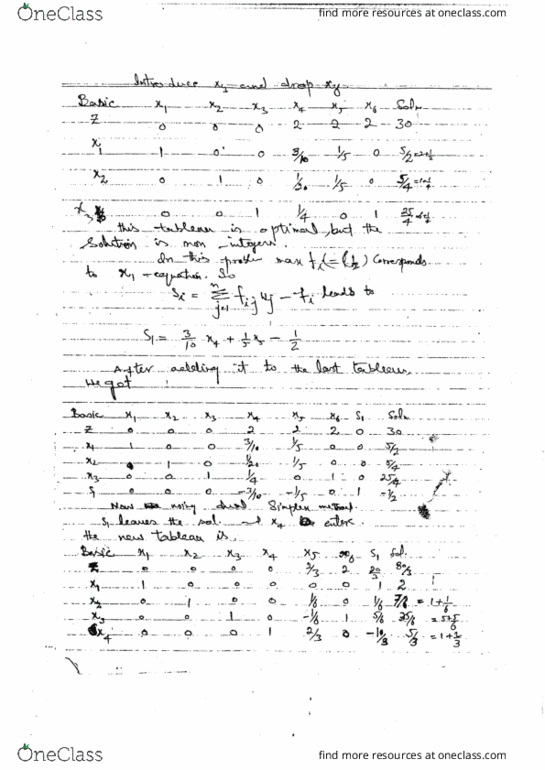 OneClass
find more resources at oneclass.com
Introduce x3 and drop x4
Basic x1 x2 x3 x4 x5 x6 Soln
Z 0 0 0 2 2 2 30
x1 1 0 0 3/10 1/5 0 5/2
x2 0 1 0 1/20 1/5 0 5/4
x3 0 0 1 1/4 0 1 25/4
this tableau is optimal but the
Solution is non integers.
In this problem max fi (= 1/2) Corresponds
to x1 - equation. So
Si = Σ(j=1 to n) fij yj - fi leads to
S1 = 3/10 x4 + 1/5 x5 - 1/2
After adding it to the last tableau,
we got
Basic x1 x2 x3 x4 x5 x6 S1 Soln
Z 0 0 0 2 2 2 0 30
x1 1 0 0 3/10 1/5 0 0 5/2
x2 0 1 0 1/20 1/5 0 0 5/4
x3 0 0 1 1/4 0 1 0 25/4
S1 0 0 0 -3/10 -1/5 0 1 -1/2
Now using dual Simplex method
S1 leaves the sol. x4 enters.
the new tableau is.
Basic x1 x2 x3 x4 x5 x6 S1 Sol.
Z 0 0 0 0 2/3 2 20/3 80/3
x1 1 0 0 0 0 0 1 2
x2 0 1 0 0 1/6 0 1/6 7/6 = 1+1/6
x3 0 0 1 0 -1/6 1 5/6 35/6 = 5+5/6
x4 0 0 0 1 2/3 0 -10/3 5/3 = 1+2/3
OneClass
find more resources at oneclass.com